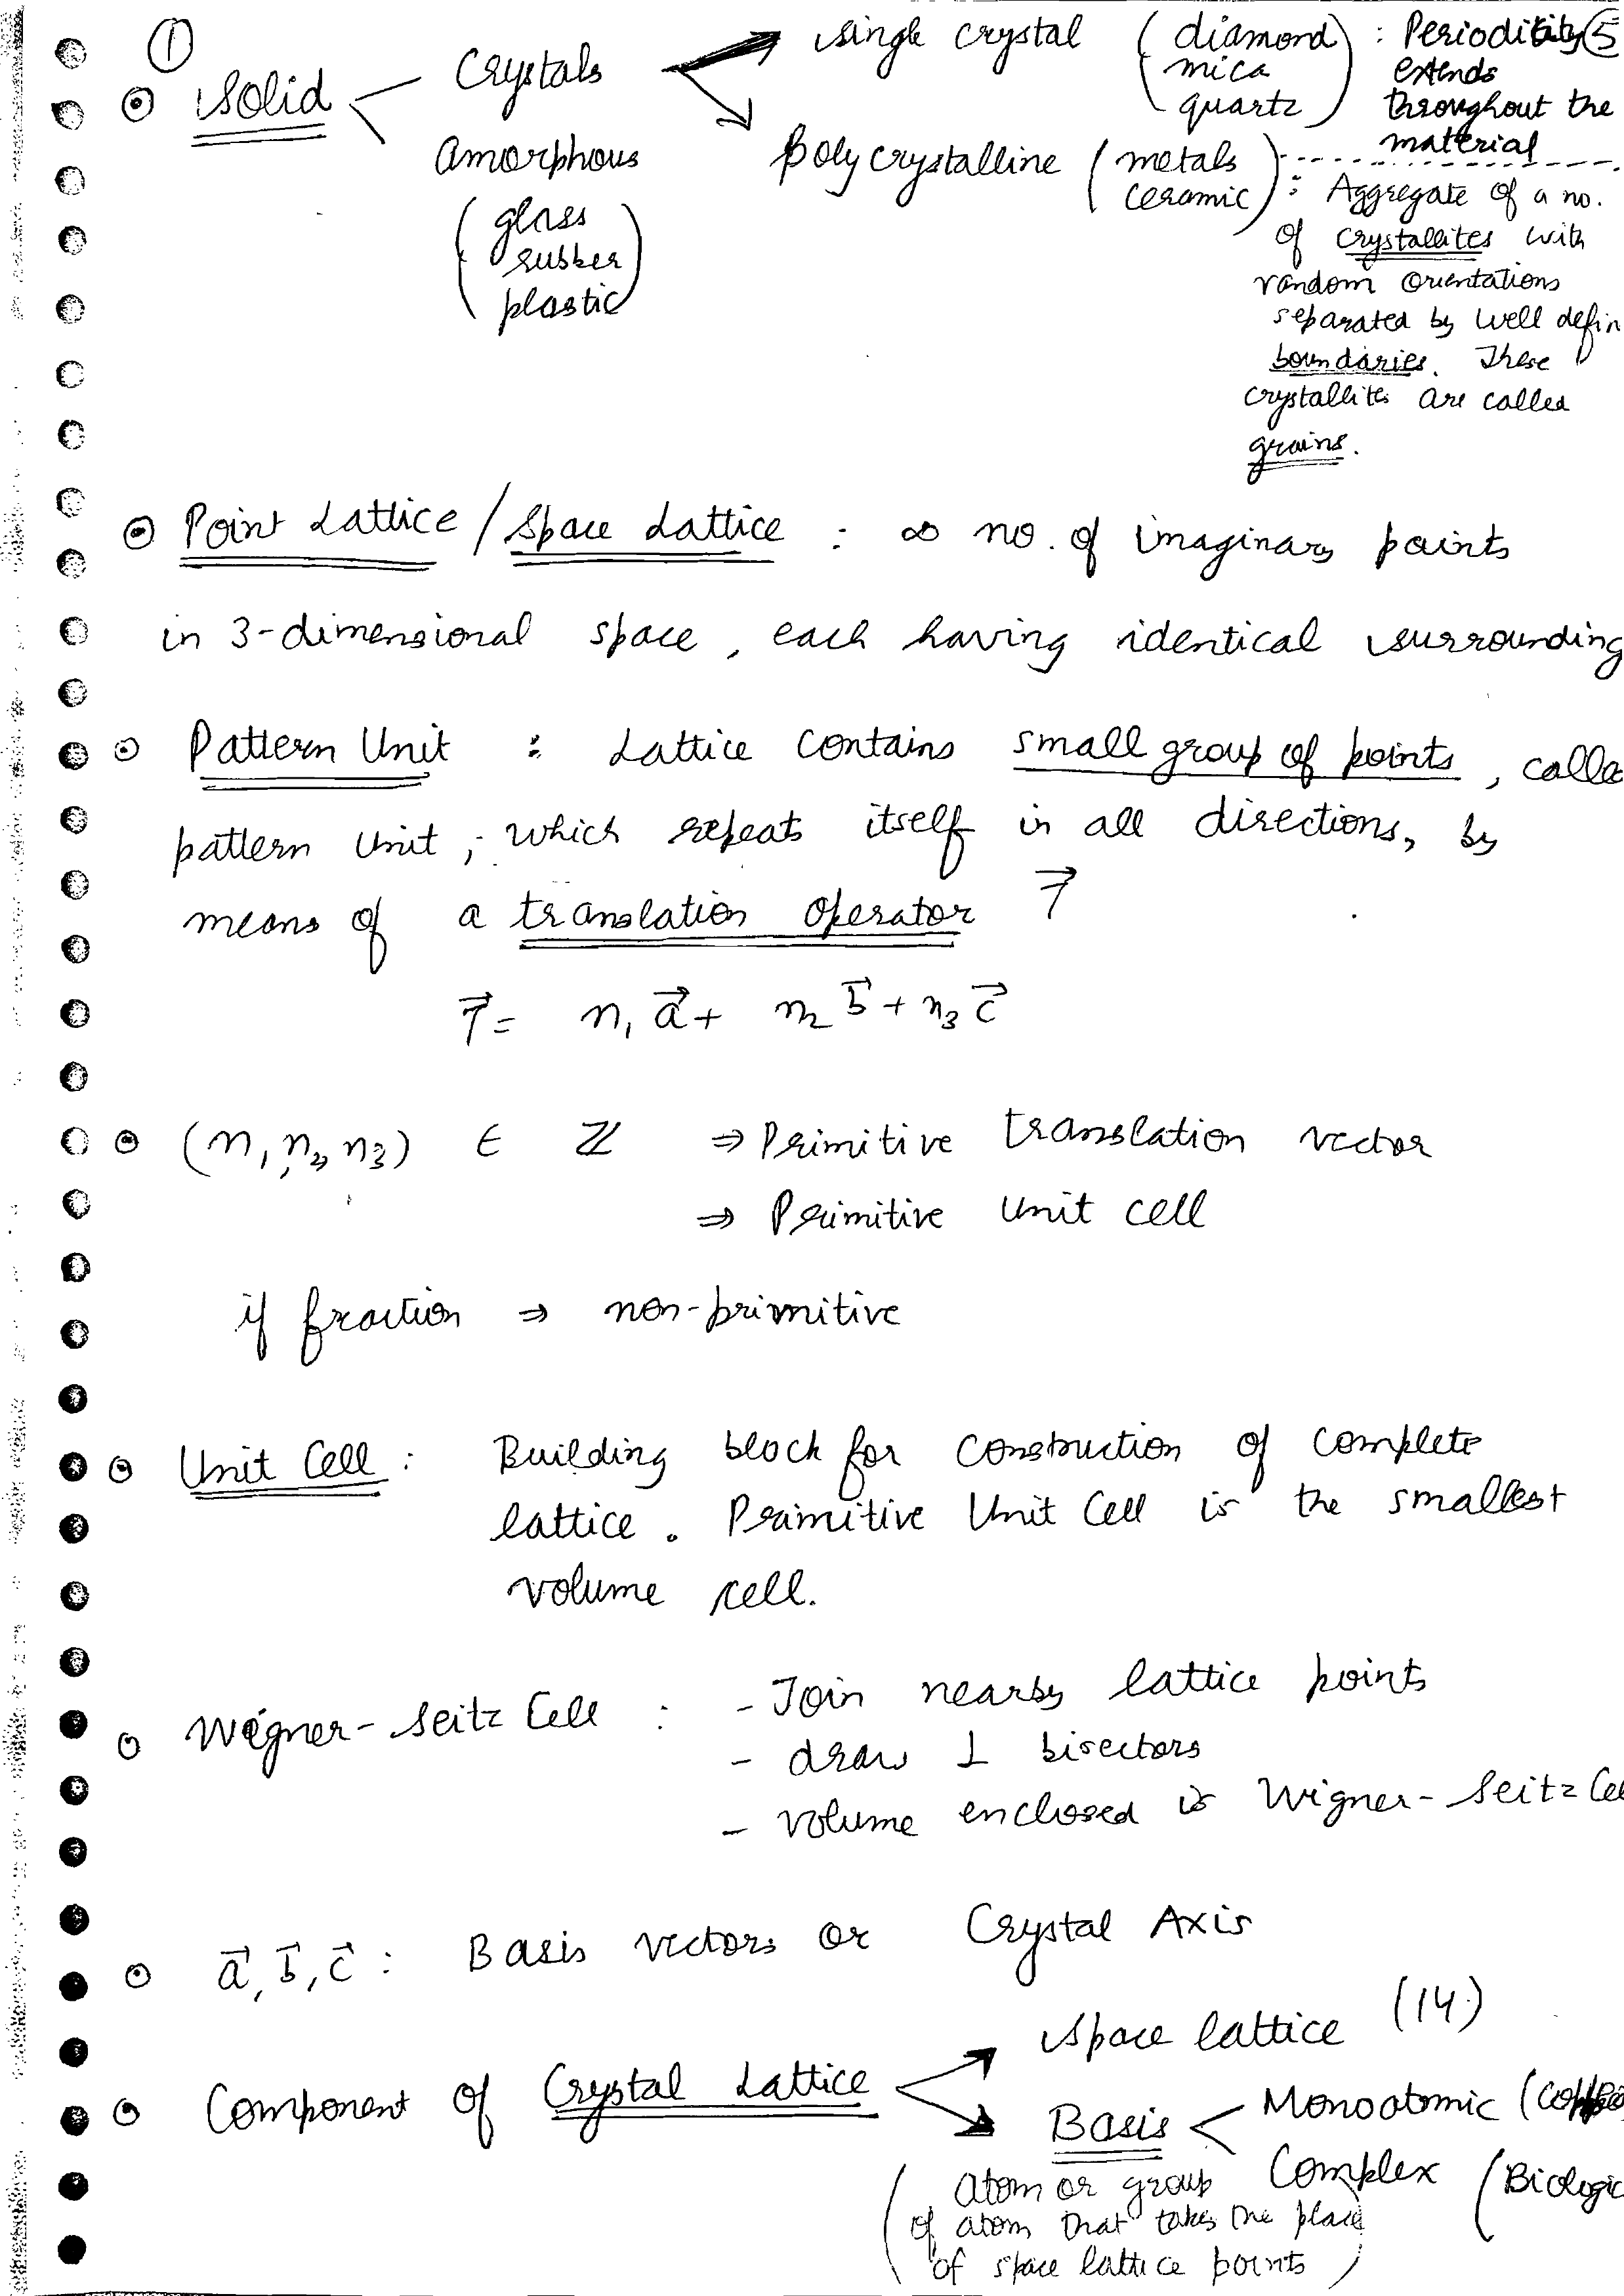 ①
⊙ Solid
Crystals
Amorphous
( glass
rubber
plastic )
single crystal ( diamond
mica
quartz ) : Periodicity
extends
throughout the
material
5
Polycrystalline ( metals
ceramic ) : Aggregate of a no.
of crystallites with
random orientations
separated by well defin
boundaries. These
crystallites are called
grains.
⊙ Point Lattice / Space Lattice : ∞ no. of imaginary points
in 3-dimensional space, each having identical surrounding
⊙ Pattern Unit : Lattice contains small group of points, calle
pattern unit, which repeats itself in all directions, by
means of a translation operator T⃗
T⃗ = n₁a⃗ + n₂b⃗ + n₃c⃗
⊙ (n₁, n₂, n₃) ∈ ℤ ⇒ Primitive translation vector
⇒ Primitive Unit cell
if fraction ⇒ non-primitive
⊙ Unit Cell : Building block for construction of complete
lattice. Primitive Unit Cell is the smallest
volume cell.
⊙ Wigner-Seitz Cell : - Join nearby lattice points
- draw ⊥ bisectors
- volume enclosed is Wigner-Seitz Ce
⊙ a⃗, b⃗, c⃗ : Basis vectors or Crystal Axis
⊙ Component of Crystal Lattice
Space lattice (14)
Basis < Monoatomic
Complex (Biologic
( Atom or group
of atom that takes the place
of space lattice points )